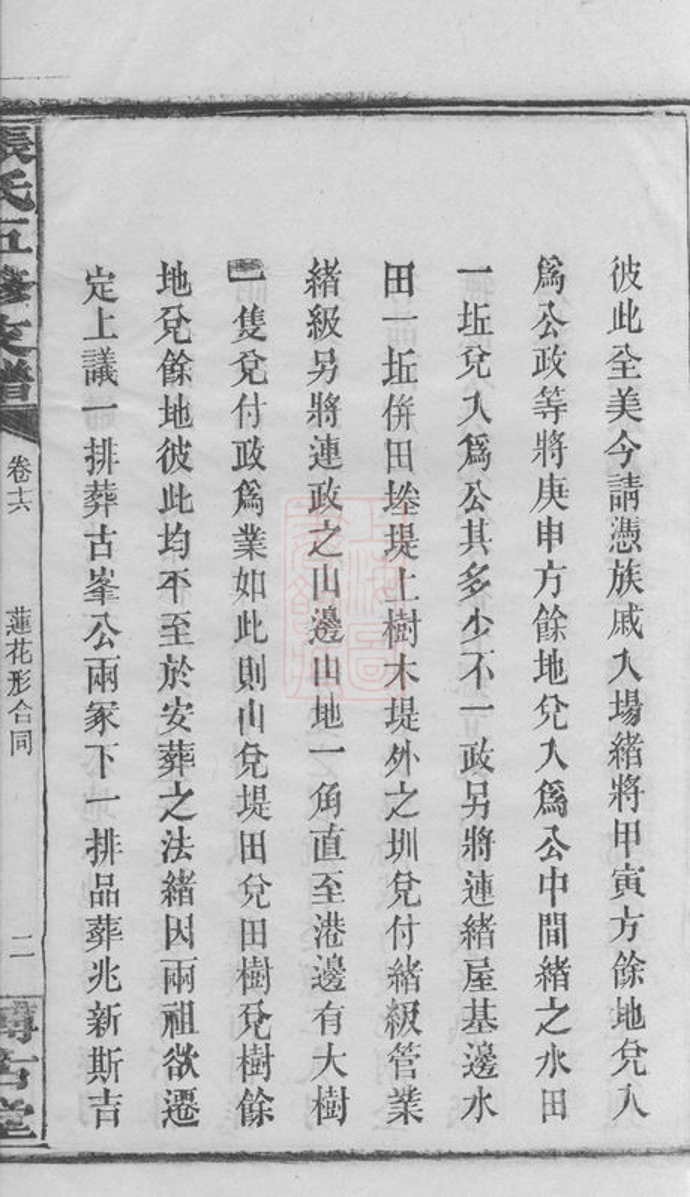 彼此全美今請憑族戚入場緒將甲寅方餘地兌入
爲公政等將庚申方餘地兌入爲公中間緒之水田
一坵兌入爲公其多少不一政另將連緒屋基邊水
田一坵併田塍堤上樹木堤外之圳兌付緒級管業
緒級另將連政之山邊山地一角直至港邊有大樹
一隻兌付政爲業如此則山兌堤田兌田樹兌樹餘
地兌餘地彼此均平至於安葬之法緒因兩祖欲遷
定上議一排葬古峯公兩冢下一排品葬兆新斯吉
張氏五修支譜
卷十六
蓮花形合同
二